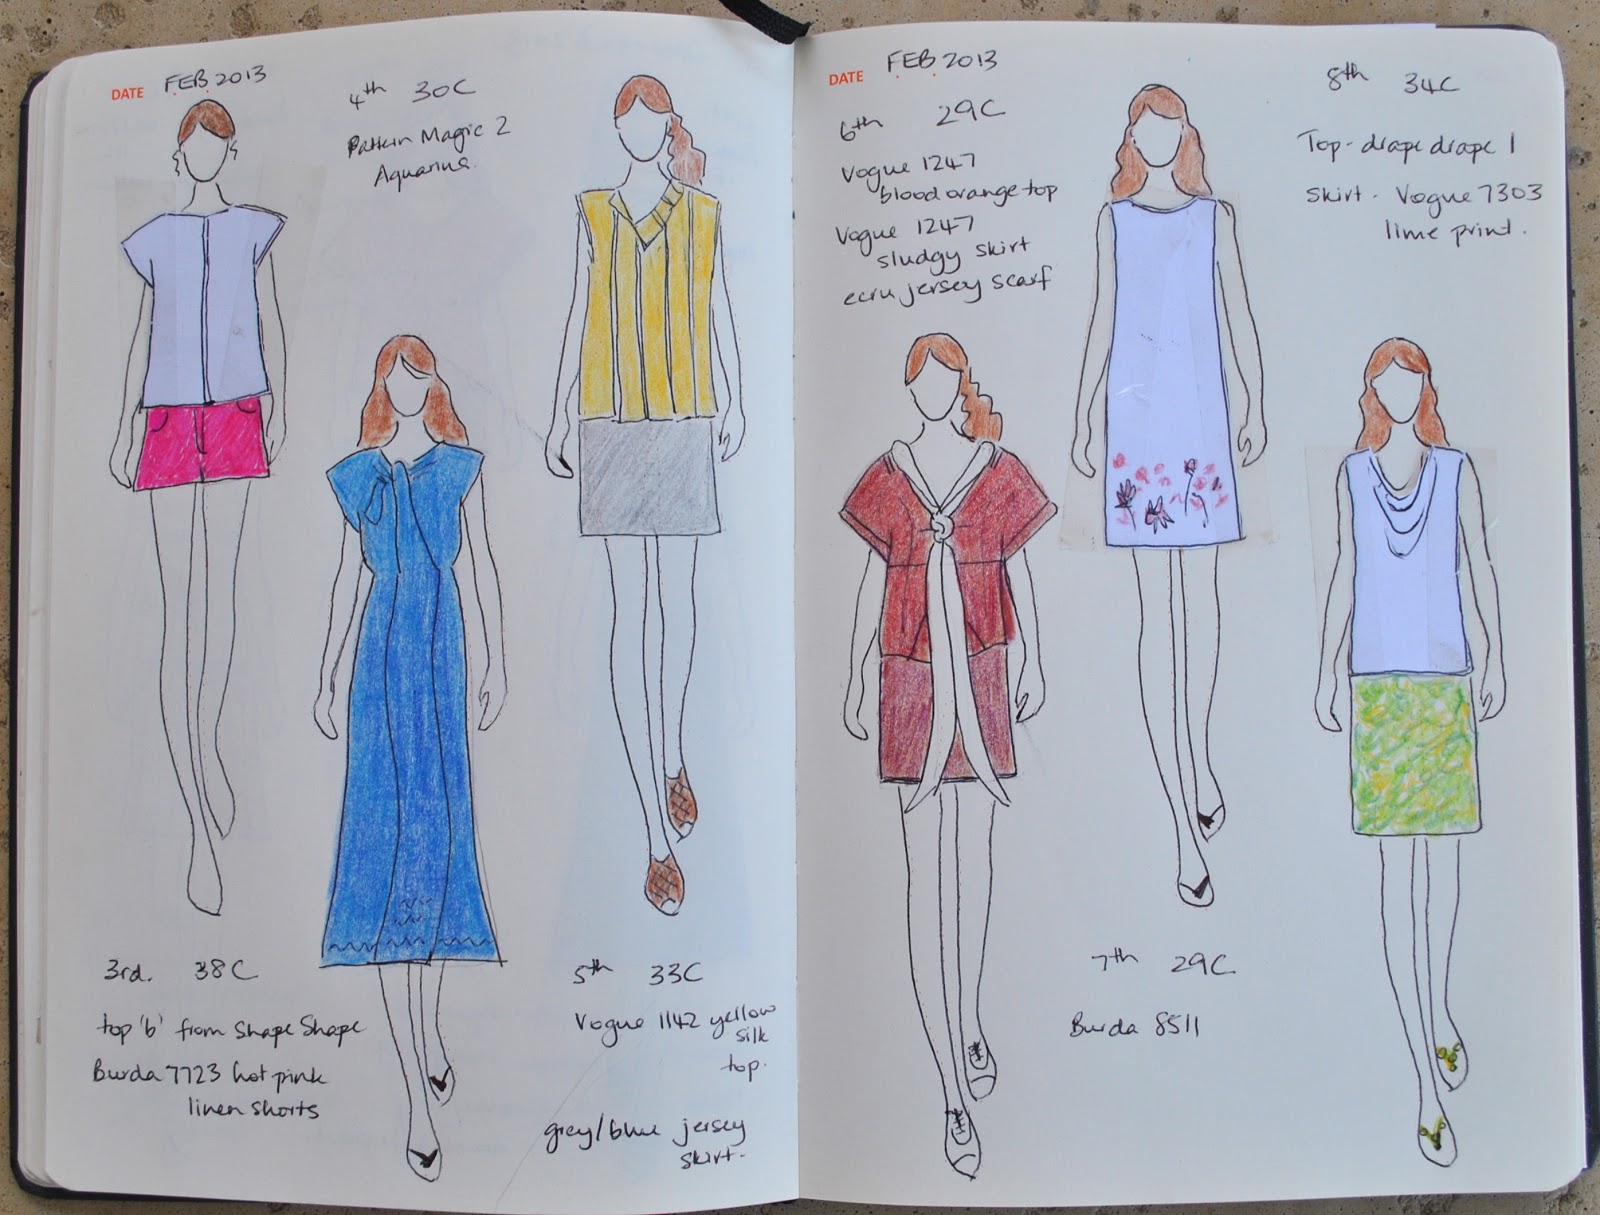 DATE FEB 2013
4th 30C
Pattern Magic 2
Aquarius
3rd. 38C
top 'b' from Shape Shape
Burda 7723 hot pink
linen shorts
5th 33C
Vogue 1142 yellow
silk
top.
grey/blue jersey
skirt.
DATE FEB 2013
6th 29C
Vogue 1247
blood orange top
Vogue 1247
sludgy skirt
ecru jersey scarf
7th 29C
Burda 8511
8th 34C
Top - drape drape 1
skirt - Vogue 7303
lime print.